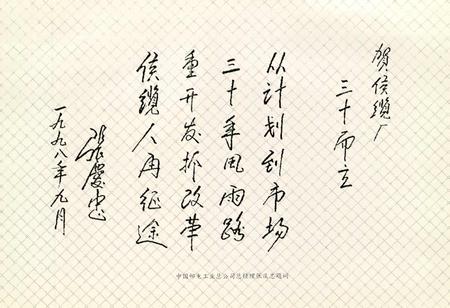 贺侯缆厂
三十而立
从计划到市场
三十年风雨路
重开发抓改革
侯缆人再征途
张庆忠
一九九八年九月
中国邮电工业总公司总经理张庆忠题词